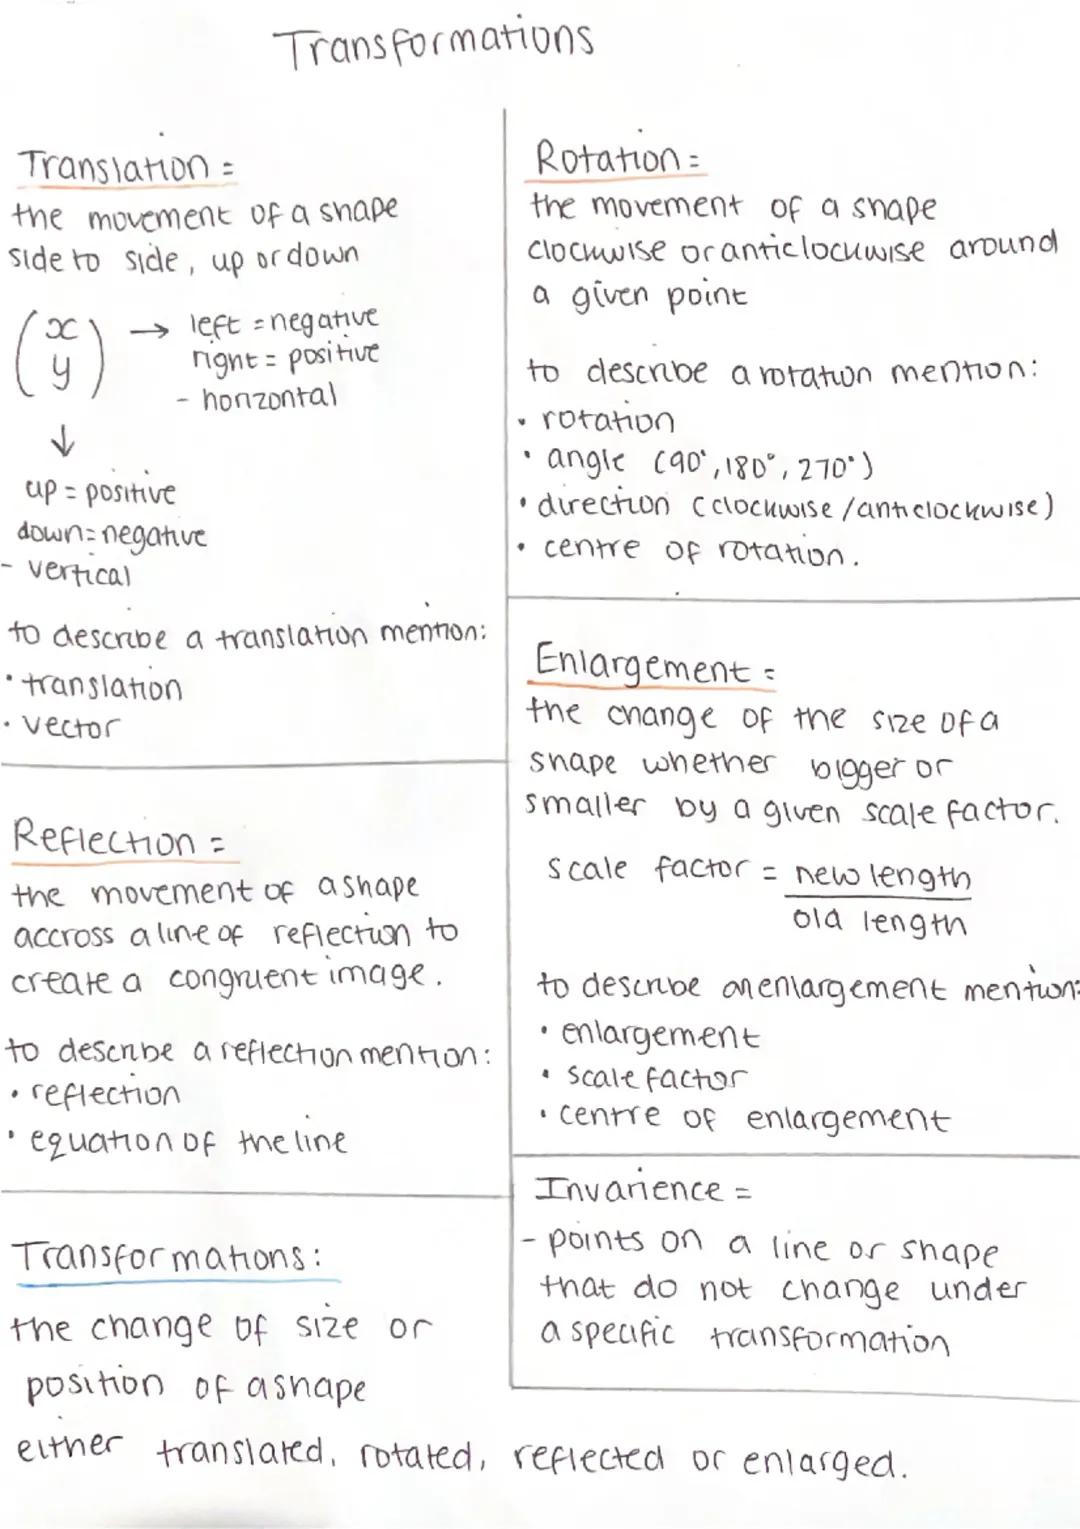 Transformations
Translation =
the movement of a shape
side to side, up or down
(x y) → left = negative
right = positive
- horizontal
↓
up = positive
down = negative
- vertical
to describe a translation mention:
• translation
• vector
Reflection =
the movement of a shape
accross a line of reflection to
create a congruent image.
to describe a reflection mention:
• reflection
• equation of the line
Transformations:
the change of size or
position of a shape
either translated, rotated, reflected or enlarged.
Rotation =
the movement of a shape
clockwise or anticlockwise around
a given point
to describe a rotation mention:
• rotation
• angle (90°, 180°, 270°)
• direction (clockwise/anticlockwise)
• centre of rotation.
Enlargement =
the change of the size of a
shape whether bigger or
smaller by a given scale factor.
scale factor = new length
old length
to describe an enlargement mention:
• enlargement
• scale factor
• centre of enlargement
Invarience =
- points on a line or shape
that do not change under
a specific transformation